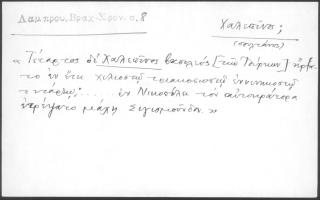 Λαμπρου.Βραχ-Χρον.σ.8
Χαλεπῖνος;
(σουλτάνος)
« Τέταρτος δὲ Χαλεπῖνος βασιλεὺς [τῶν Τούρκων] ἤρξα-
το ἐν ἔτει χιλιοστῷ τριακοσιοστῷ ἐννενηκοστῷ
τετάρτῳ; ..... ἐν Νικοπόλει τὸν αὐτοκράτορα
ἐτρέψατο μάχῃ Σιγισμοῦνδον. »